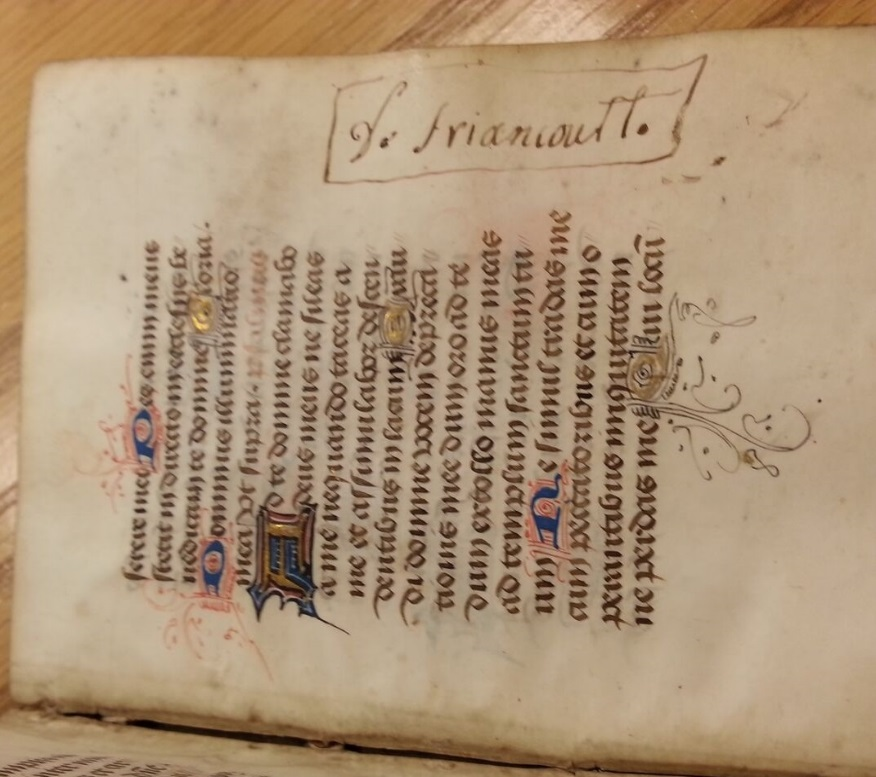 serere mei Pes enim meus
stetit in directo in ecclesiis be
nedicam te domine Gloria.
Dominus illuminatio
mea vt supra. psalmus
Ad te domine clamabo
deus meus ne sileas
a me nequando taceas a
me et assimilabor descen
dentibus in lacum Exau
di domine vocem depreca
tionis mee dum oro ad te
dum extollo manus meas
ad templum sanctum tu
um Ne simul tradas me
cum peccatoribus et cum o
perantibus iniquitatem
ne perdas me Qui locū